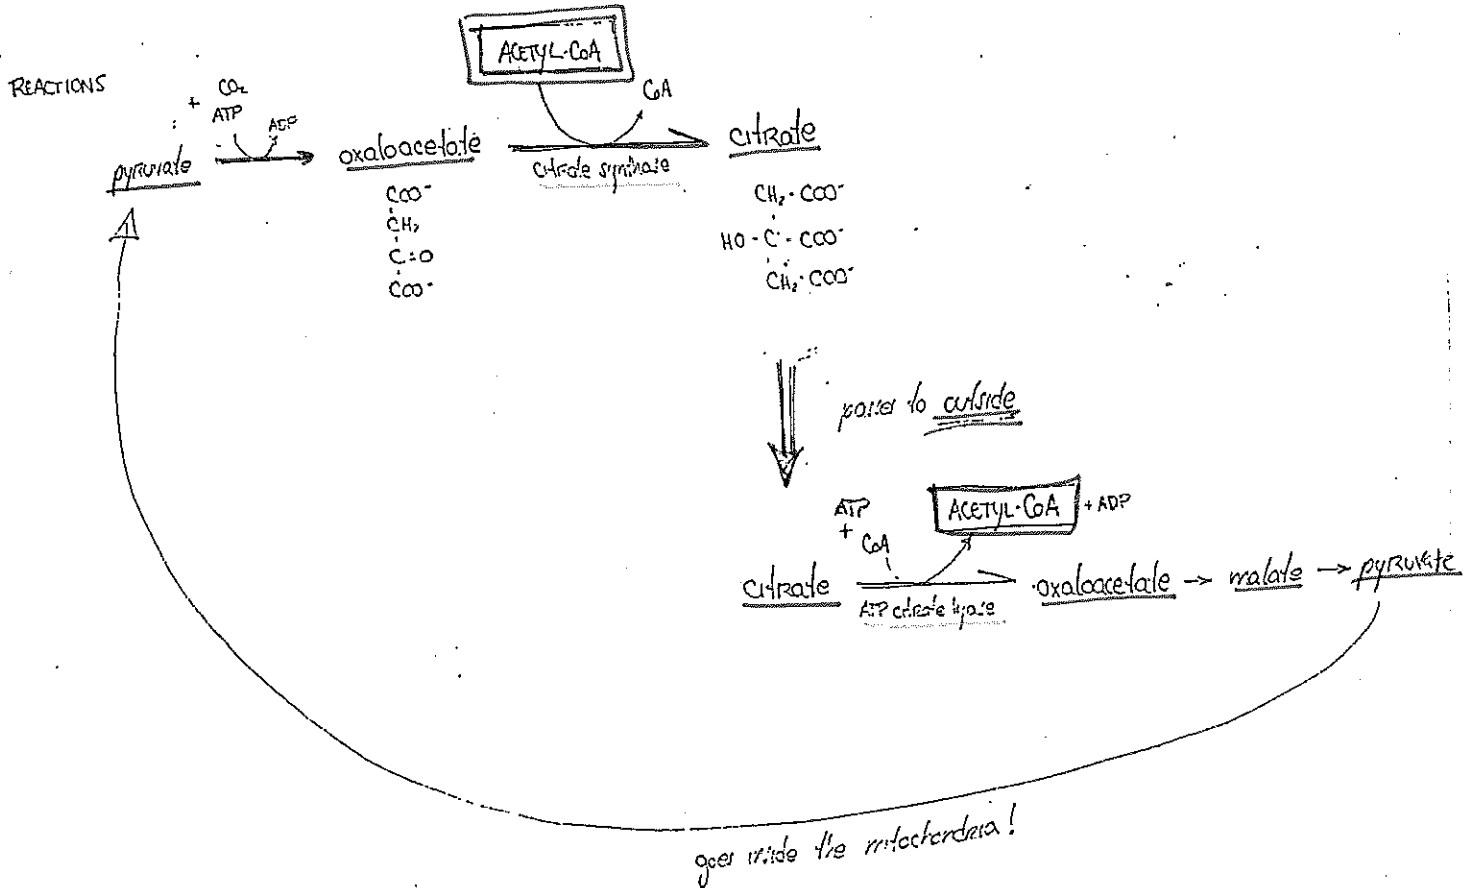 REACTIONS
ACETYL-CoA
+ CO₂
ATP
ADP
CoA
pyruvate
oxaloacetate
citrate synthase
citrate
COO⁻
CH₂
C=O
COO⁻
CH₂-COO⁻
HO-C-COO⁻
CH₂-COO⁻
passes to outside
ATP
+
CoA
ACETYL-CoA + ADP
citrate
ATP citrate lyase
oxaloacetate → malate → pyruvate
goes inside the mitochondria!